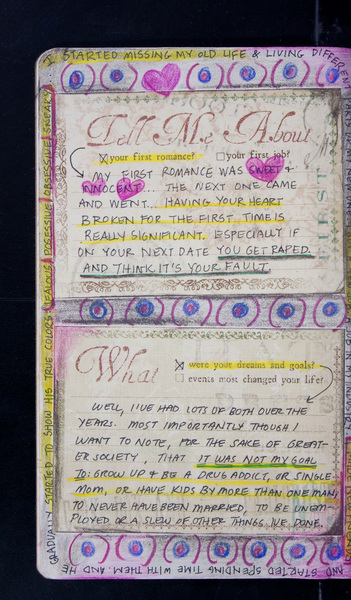 I STARTED MISSING MY OLD LIFE & LIVING DIFFERENT
Tell Me About
your first romance? your first job?
MY FIRST ROMANCE WAS SWEET &
INNOCENT.... THE NEXT ONE CAME
AND WENT... HAVING YOUR HEART
BROKEN FOR THE FIRST TIME IS
REALLY SIGNIFICANT. ESPECIALLY IF
ON YOUR NEXT DATE YOU GET RAPED.
AND THINK IT'S YOUR FAULT.
What
were your dreams and goals?
events most changed your life?
WELL, I'VE HAD LOTS OF BOTH OVER THE
YEARS. MOST IMPORTANTLY THOUGH I
WANT TO NOTE, FOR THE SAKE OF GREAT-
ER SOCIETY, THAT IT WAS NOT MY GOAL
TO: GROW UP & BE A DRUG ADDICT, OR SINGLE
MOM, OR HAVE KIDS BY MORE THAN ONE MAN,
TO NEVER HAVE BEEN MARRIED, TO BE UNEM-
PLOYED OR A SLEW OF OTHER THINGS I'VE DONE.
AND STARTED SPENDING TIME WITH THEM. AND HE
GRADUALLY STARTED TO SHOW HIS TRUE COLORS. JEALOUS. POSESSIVE. OBSESSIVE. SNEAKY